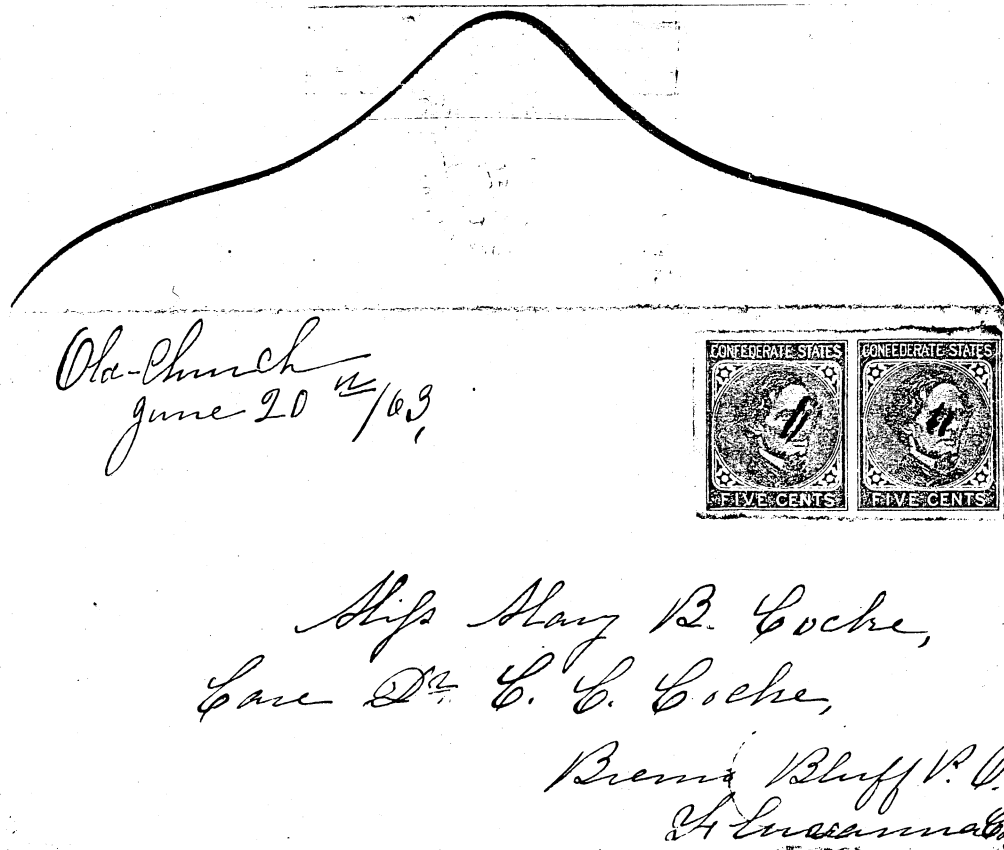 Old-Church
June 20th/63,
CONFEDERATE STATES CONFEDERATE STATES
FIVE CENTS FIVE CENTS
Miss Mary B. Cocke,
Care Dr. C. C. Cocke,
Bremo Bluff P. O.
Fluvanna Co.